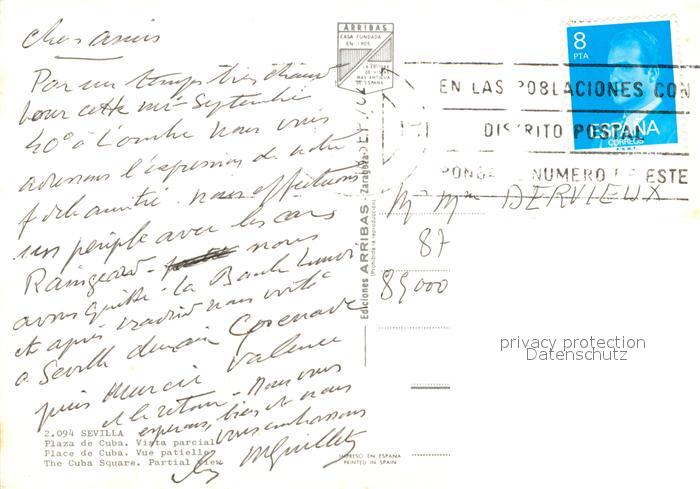 Chers amis
Par un temps très chaud
pour cette mi-Septembre
40° à l'ombre nous vous
adressons l'expression de notre
amitié. nous effectuons
un periple avec les cars
nous
avons quitté la
et après madrid nous voilà
a Seville demain Grenade
puis Murcie Valence
et le retour - Nous vous
esperons bien et nous
vous embrassons
ARRIBAS
CASA FUNDADA
EN 1905
LA EDITORA
MAS ANTIGUA
DE ESPAÑA
Ediciones ARRIBAS - Zaragoza
(Prohibida la reproducción)
8
PTA
ESPAÑA
CORREOS
F.N.M.T.
EN LAS POBLACIONES CON
DISTRITO POSTAL
PONGA NUMERO DE ESTE
Mr Mme DERVIEUX
87
89000
privacy protection
Datenschutz
2.094 SEVILLA
Plaza de Cuba. Vista parcial
Place de Cuba. Vue patielle
The Cuba Square. Partial View
IMPRESO EN ESPAÑA
PRINTED IN SPAIN